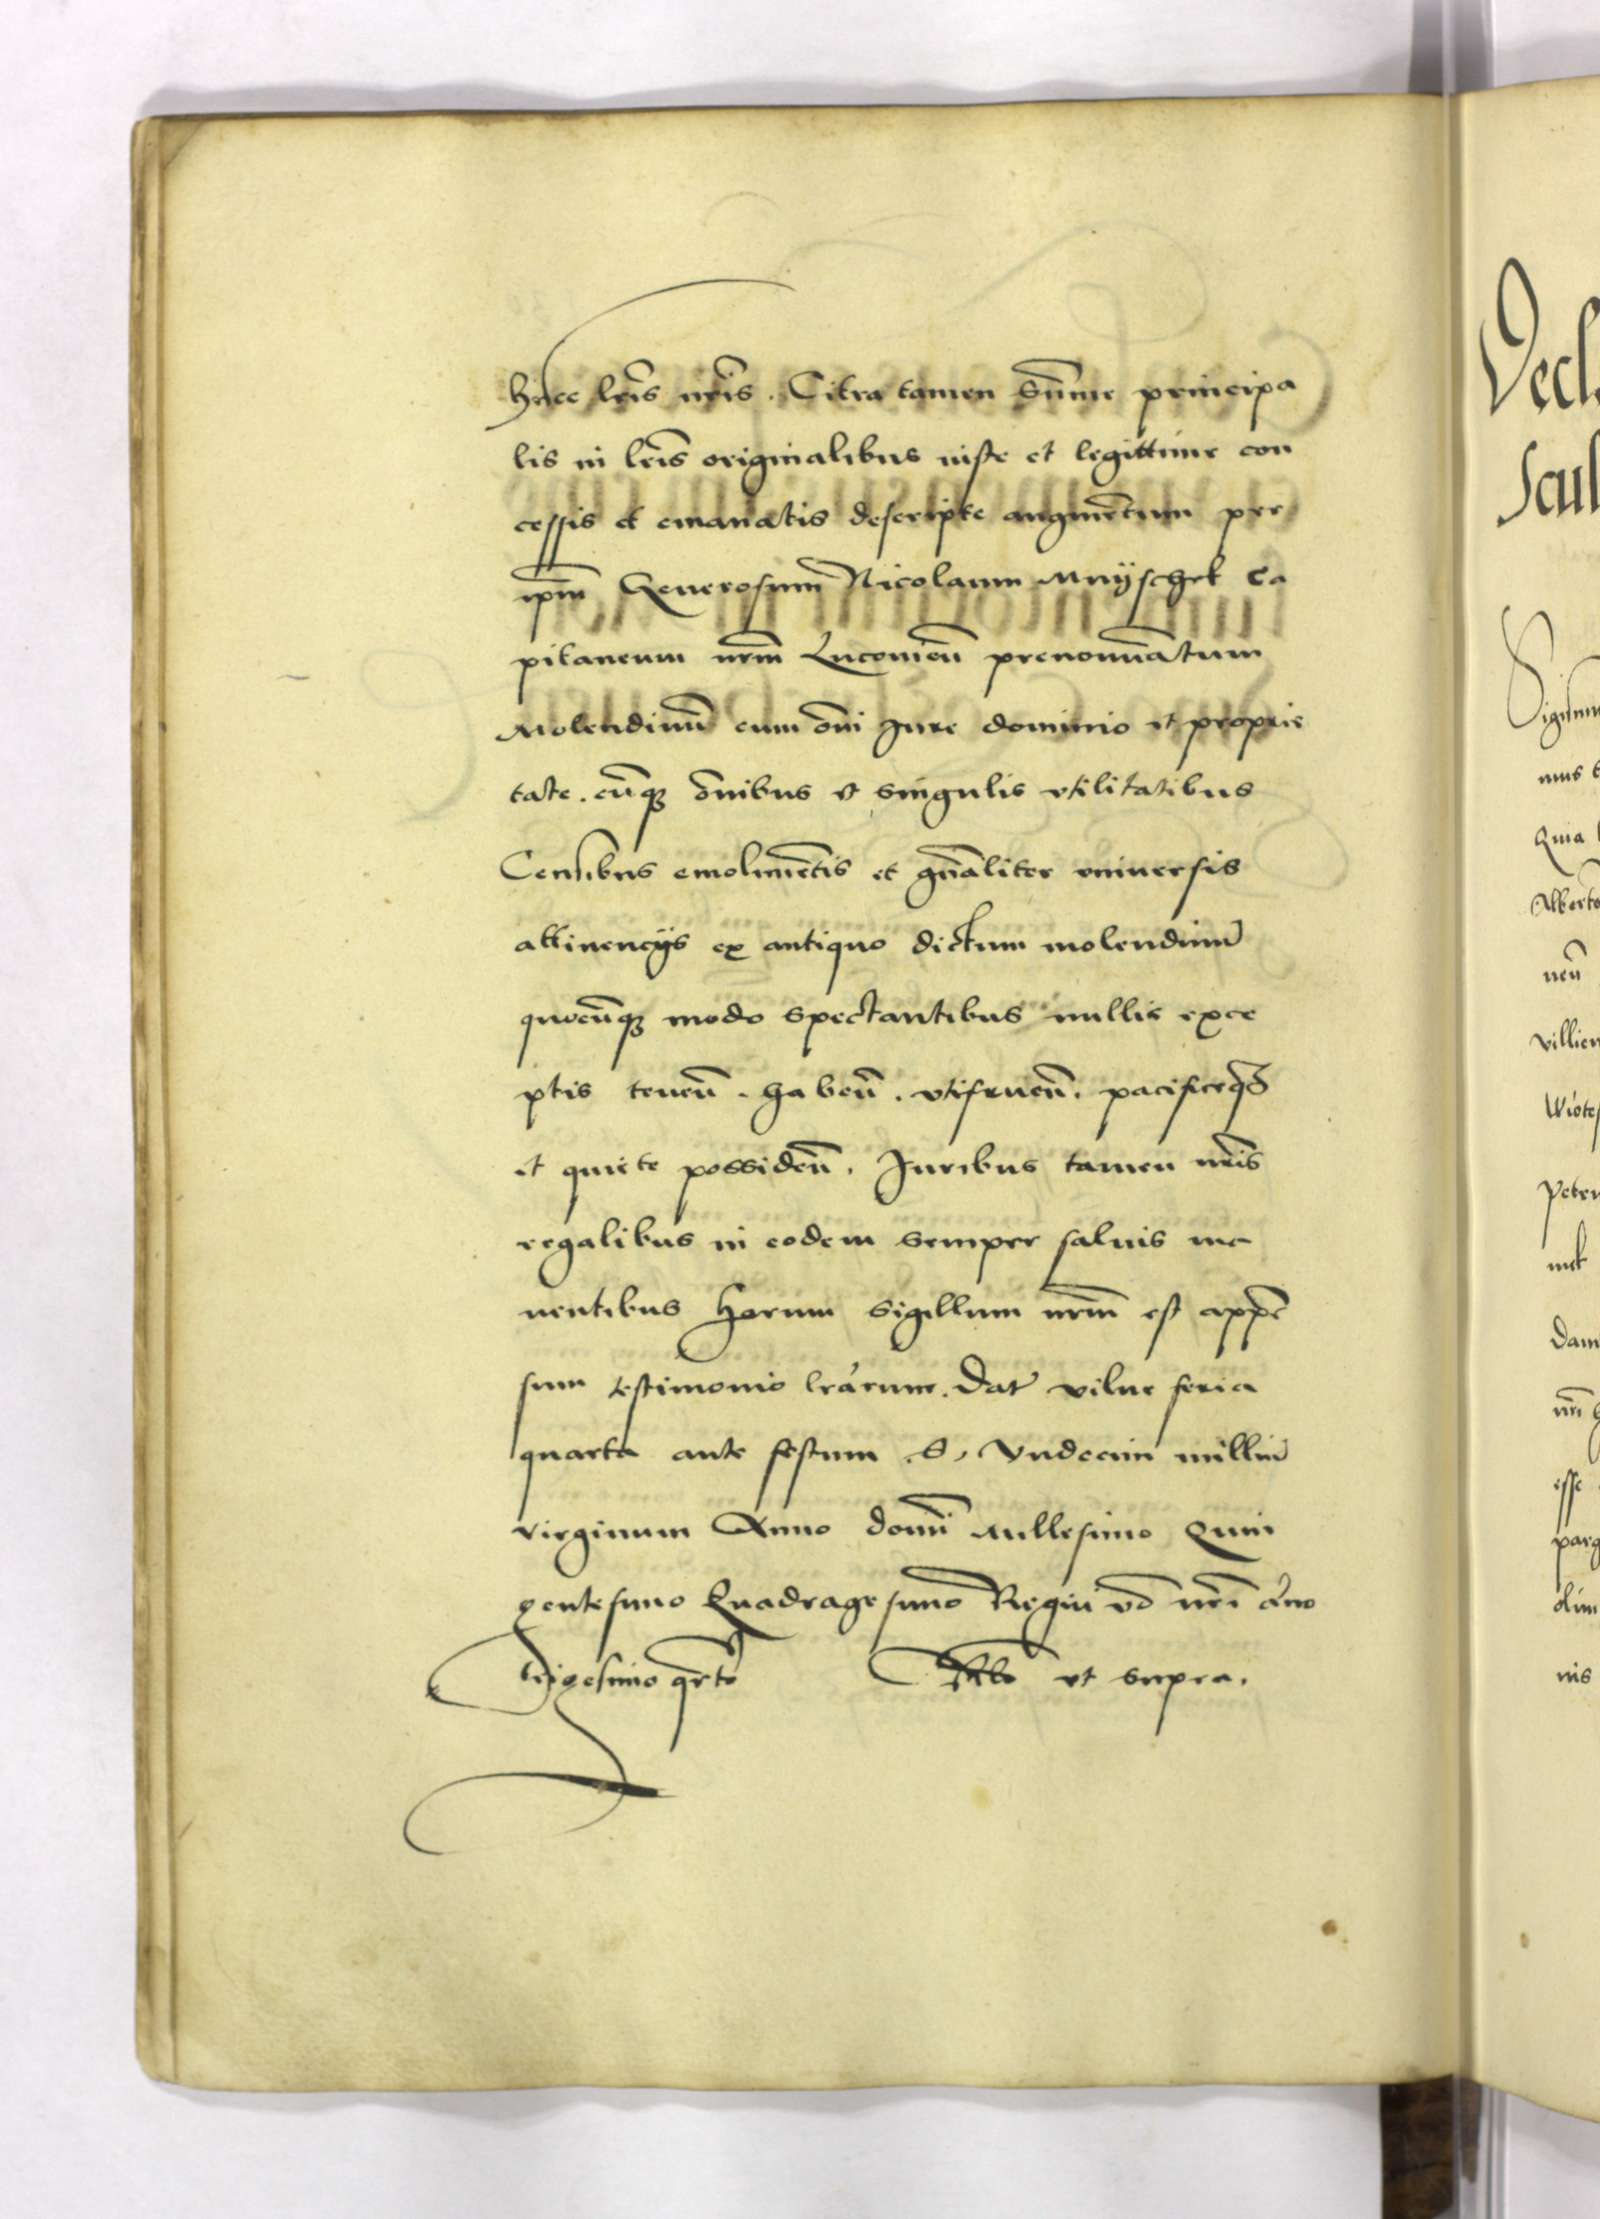 hisce lr̃is nr̃is . Citra tamen sum̃e principa
lis in lr̃is originalibus iuste et legittime con
cessis et emanatis descripte augmẽtum per
ip̃m Generosum Nicolaum Mnyschek Ca
pitaneum nr̃m Luconieñ prenomiñatum
Molendinũ cum om̃i Jure dominio et proprie
tate . cũq; om̃ibus et singulis vtilitatibus
Censibus emolimẽtis et gñaliter vniversis
attinencijs ex antiquo dictum molendinũ
quocũq; modo spectantibus nullis exce
ptis teneñ . habeñ . vtifrueñ . pacificeq;
et quiete possideñ . Juribus tamen nr̃is
regalibus in eodem semper saluis ma
nentibus Harum sigillum nr̃m est appẽ
sum testimonio lr̃arum . Dat̃ vilne feria
quarta ante festum S. Vndecim milliũ
virginum Anno domĩ Millesimo Quin
gentesimo Quadragesimo Regni vo nr̃i ãno
trigesimo q̃rto ut supra .
Decl
Scul
Quia
villien
esse
olim
nis